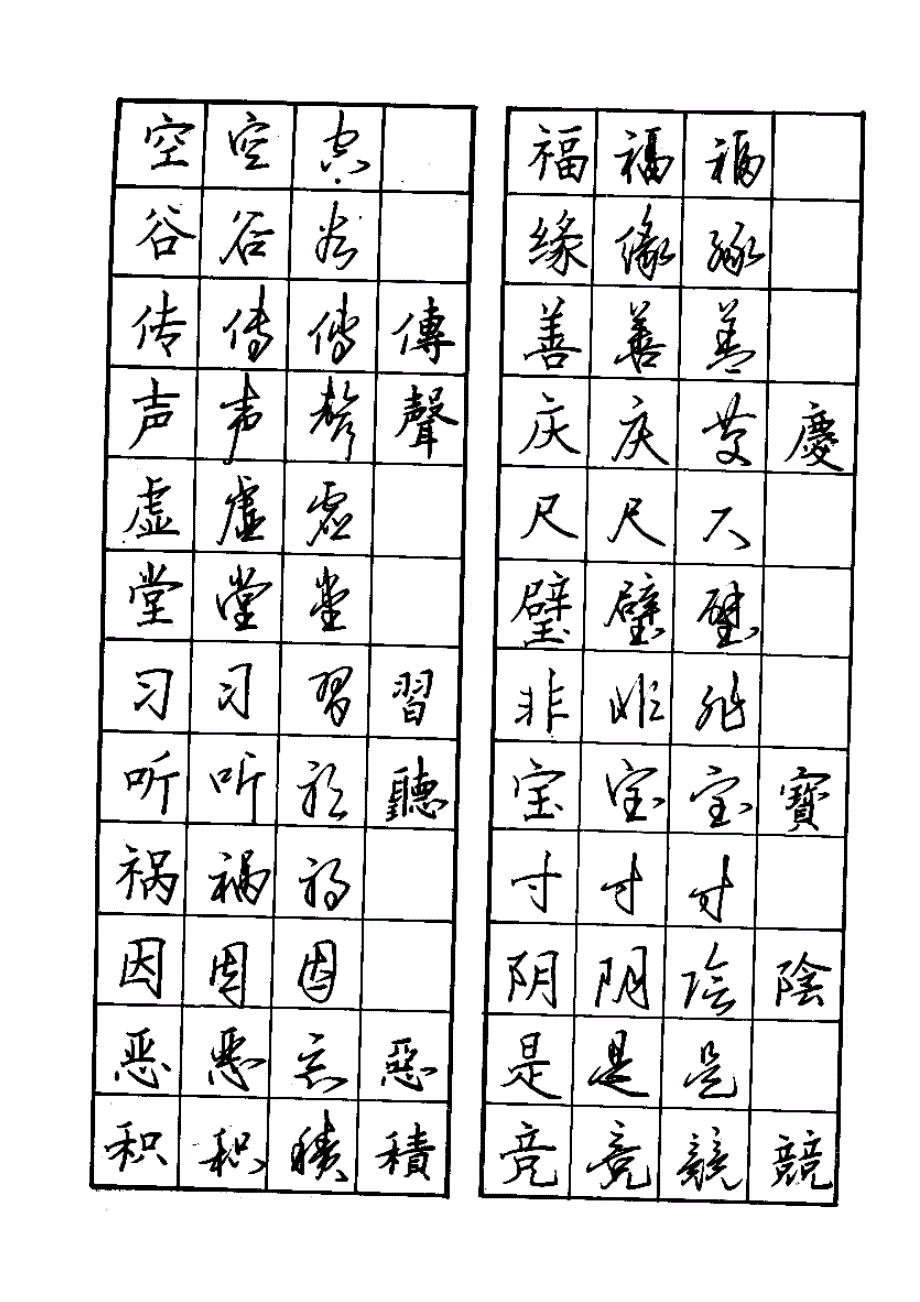 空 空 空
谷 谷 谷
传 传 傳 傳
声 声 聲 聲
虚 虚 虚
堂 堂 堂
习 习 習 習
听 听 听 聽
祸 祸 祸
因 因 因
恶 恶 恶 惡
积 积 積 積
福 福 福
缘 缘 缘
善 善 善
庆 庆 慶 慶
尺 尺 尺
璧 璧 璧
非 非 非
宝 宝 宝 寶
寸 寸 寸
阴 阴 陰 陰
是 是 是
竞 竞 競 競